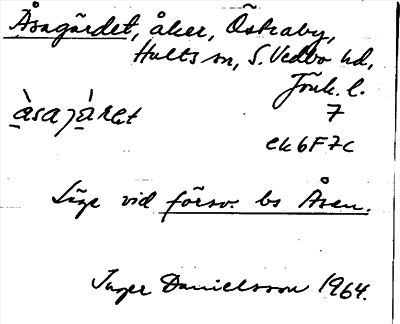 Åsagärdet, åker, Östraby,
Hults sn, S. Vedbo hd,
Jönk. l.
7
ek 6F7c
Låge vid försv. bs Åsen.
Inger Danielsson 1964.